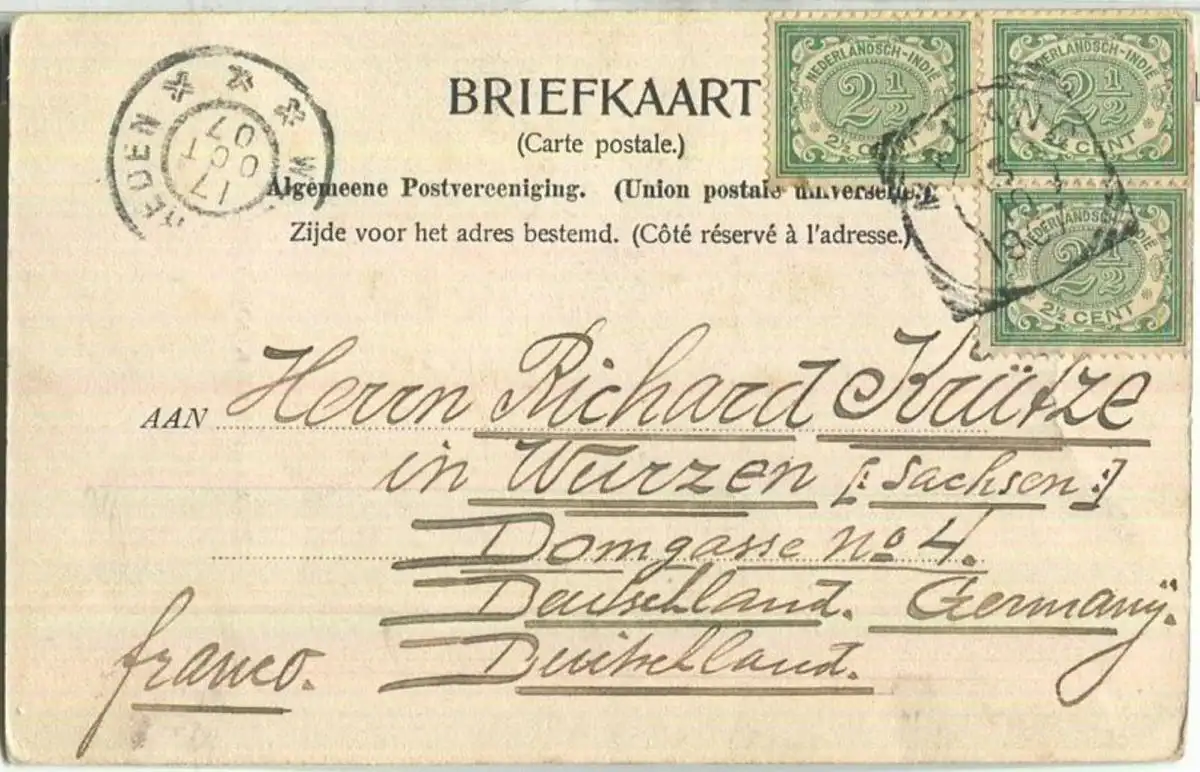 BRIEFKAART
(Carte postale.)
Algemeene Postvereeniging. (Union postale universelle.)
Zijde voor het adres bestemd. (Côté réservé à l'adresse.)
NEDERLANDSCH-INDIË
2 1/2
2½ CENT
NEDERLANDSCH-INDIË
2 1/2
2½ CENT
NEDERLANDSCH-
2 1/2
2½ CENT
EDEN
W
17
OCT
07
AAN Herrn Richard Krütze
in Wurzen [: Sachsen :]
Domgasse No 4.
Deutschland. Germany.
Duitschland.
franco.